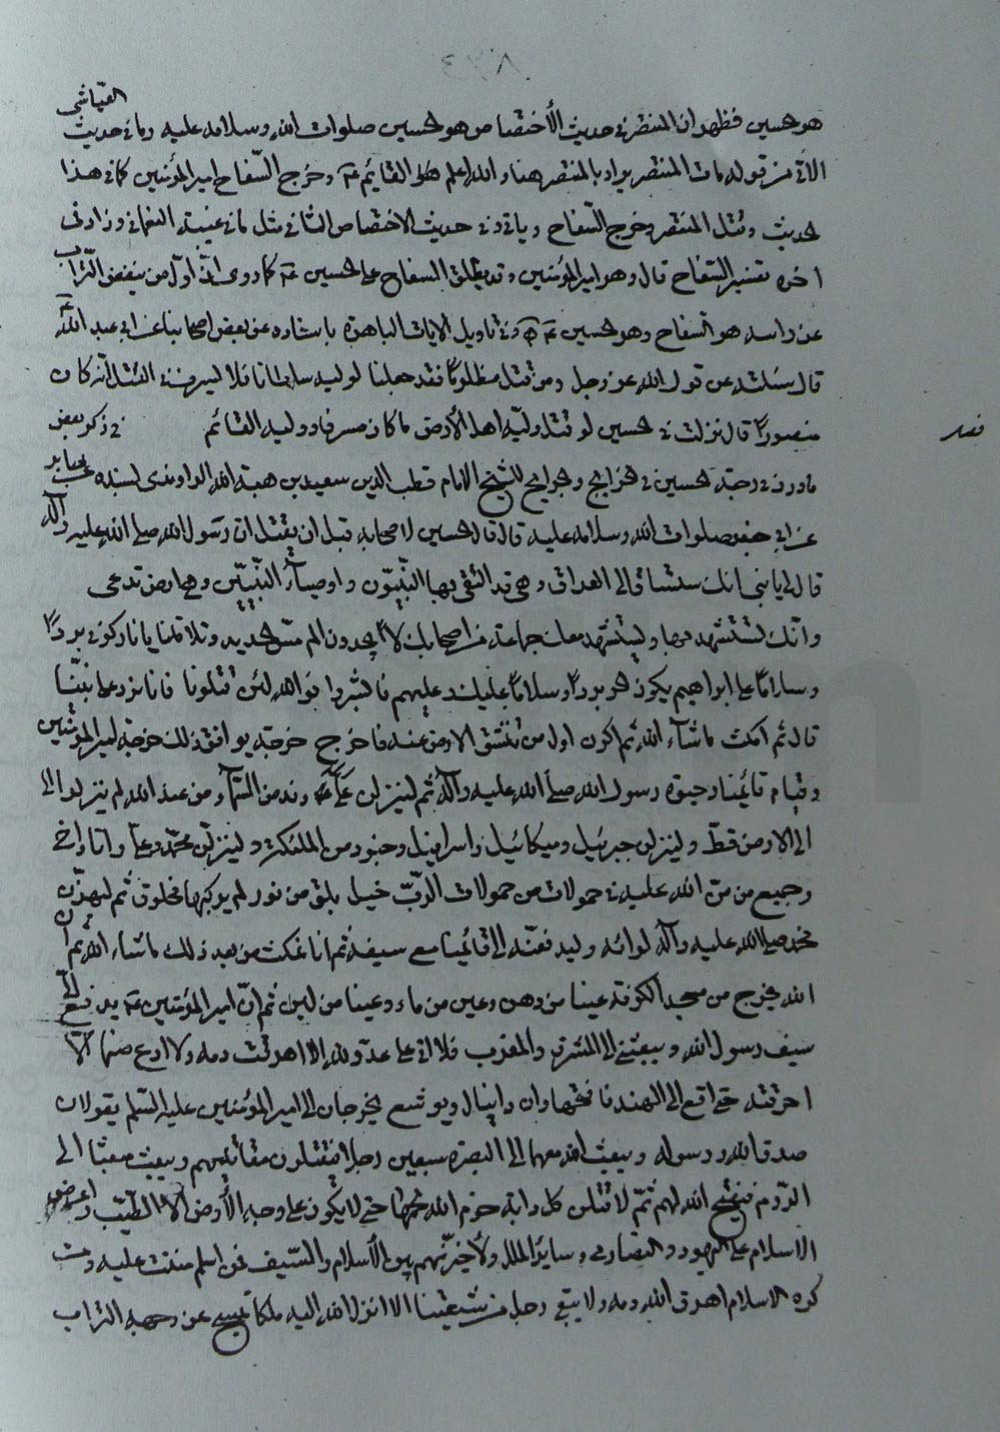 العياشي
هو الحسين فظهر ان المنتصر في حديث الأختصاص هو الحسين صلوات الله وسلامه عليه وما في حديث
الآتي من قوله مات المنتصر يراد بالمنتصر هنا والله اعلم القائم عه وخرج السفاح امير المؤمنين كما في هذا
الحديث وقتل المنتصر وخرج السفاح ويأتي في حديث الاختصاص الثاني مثل ما في غيبة النعماني وزاد في
اخره تفسير السفاح قال وهو امير المؤمنين وقد يطلق السفاح على الحسين عه كما روى انّ اوّل من ينفض التّراب
عن راسه هو السفاح وهو الحسين عه وفي تاويل الايات الباهرة باسناده عن بعض اصحابنا عن ابي عبد الله عه
قال سئلته عن قول الله عز وجل ومن قتل مظلوماً فقد جعلنا لوليه سلطانا فلا يسرف في القتل انه كان
منصوراً قال نزلت في الحسين لو قتل وليّه اهل الأرض ما كان مسرفا ووليه القائم في ذكر بعض
فصل
ما ورد في رجعة الحسين في الخرايج والجرايح للشيخ الامام قطب الدين سعيد بن هبة الله الراوندي بسنده عن جابر
عن ابي جعفر صلوات الله وسلامه عليه قال قال الحسين لاصحابه قبل ان يقتل ان رسول الله صلى الله عليه وآله
قال لي يا بني انك ستساق الى العراق وهي قد التقى بها النّبيّون واوصيآء النّبيّين وهي ارض تدعى
وانّك تستشهد بها ويستشهد معك جماعة من اصحابك لا يجدون الم مسّ الحديد وتلا قلنا يا نار كوني برداً
وسلاماً على ابراهيم يكون الحر برداً وسلاماً عليك وعليهم فابشروا فوالله لئن قتلونا فانا نرد على نبيّنا
قال ثم امكث ماشآء الله ثم اكون اول من تنشق الارض عنه فاخرج خرجة يوافق ذلك خرجة امير المؤمنين
وقيام قائمنا وحيوة رسول الله صلى الله عليه وآله ثم لينزلن عليّ وفد من السّمآء من عند الله لم ينزلوا الى
الى الارض قطّ ولينزلن جبرئيل وميكائيل واسرافيل وجنود من الملئكة ولينزلنّ محمّد وعليّ وانا واخي
وجميع من منّ الله عليه في حمولات من حمولات الرّبّ خيل بلق من نور لم يركبها مخلوق ثم ليهزّن
محمد صلى الله عليه وآله لوائه وليدفعنّه الى قائمنا مع سيفه ثم انا نمكث من بعد ذلك ماشاء الله ثم انّ
الله يخرج من مسجد الكوفة عينا من دهن وعين من ماء وعينا من لبن ثم انّ امير المؤمنين عه يدفع اليّ
سيف رسول الله ويبعثني الى المشرق والمغرب فلا اتي على عدو لله الا اهرقت دمه ولا ادع صنما الا
احرقته حتى اقع الى الهند فافتحها وان دانيال ويوشع يخرجان الى امير المؤمنين عليه السّلم يقولان
صدق الله ورسوله ويبعث الله معهما الى البصرة سبعين رجلا فيقتلون مقاتليهم ويبعث بعثا الى
الرّوم فيفتح الله لهم ثمّ لاقتلن كل دابة حرم الله لحمها حتى لا يكون على وجه الأرض الا الطيّب واعرض
الاسلام على اليهود والنصارى وساير الملل ولأخيرنّهم بين الأسلام والسّيف فمن اسلم مننت عليه ومن
كره الاسلام اهرق الله دمه ولا يبقى رجل من شيعتنا الا انزل الله اليه ملكا يمسح عن وجهه التراب